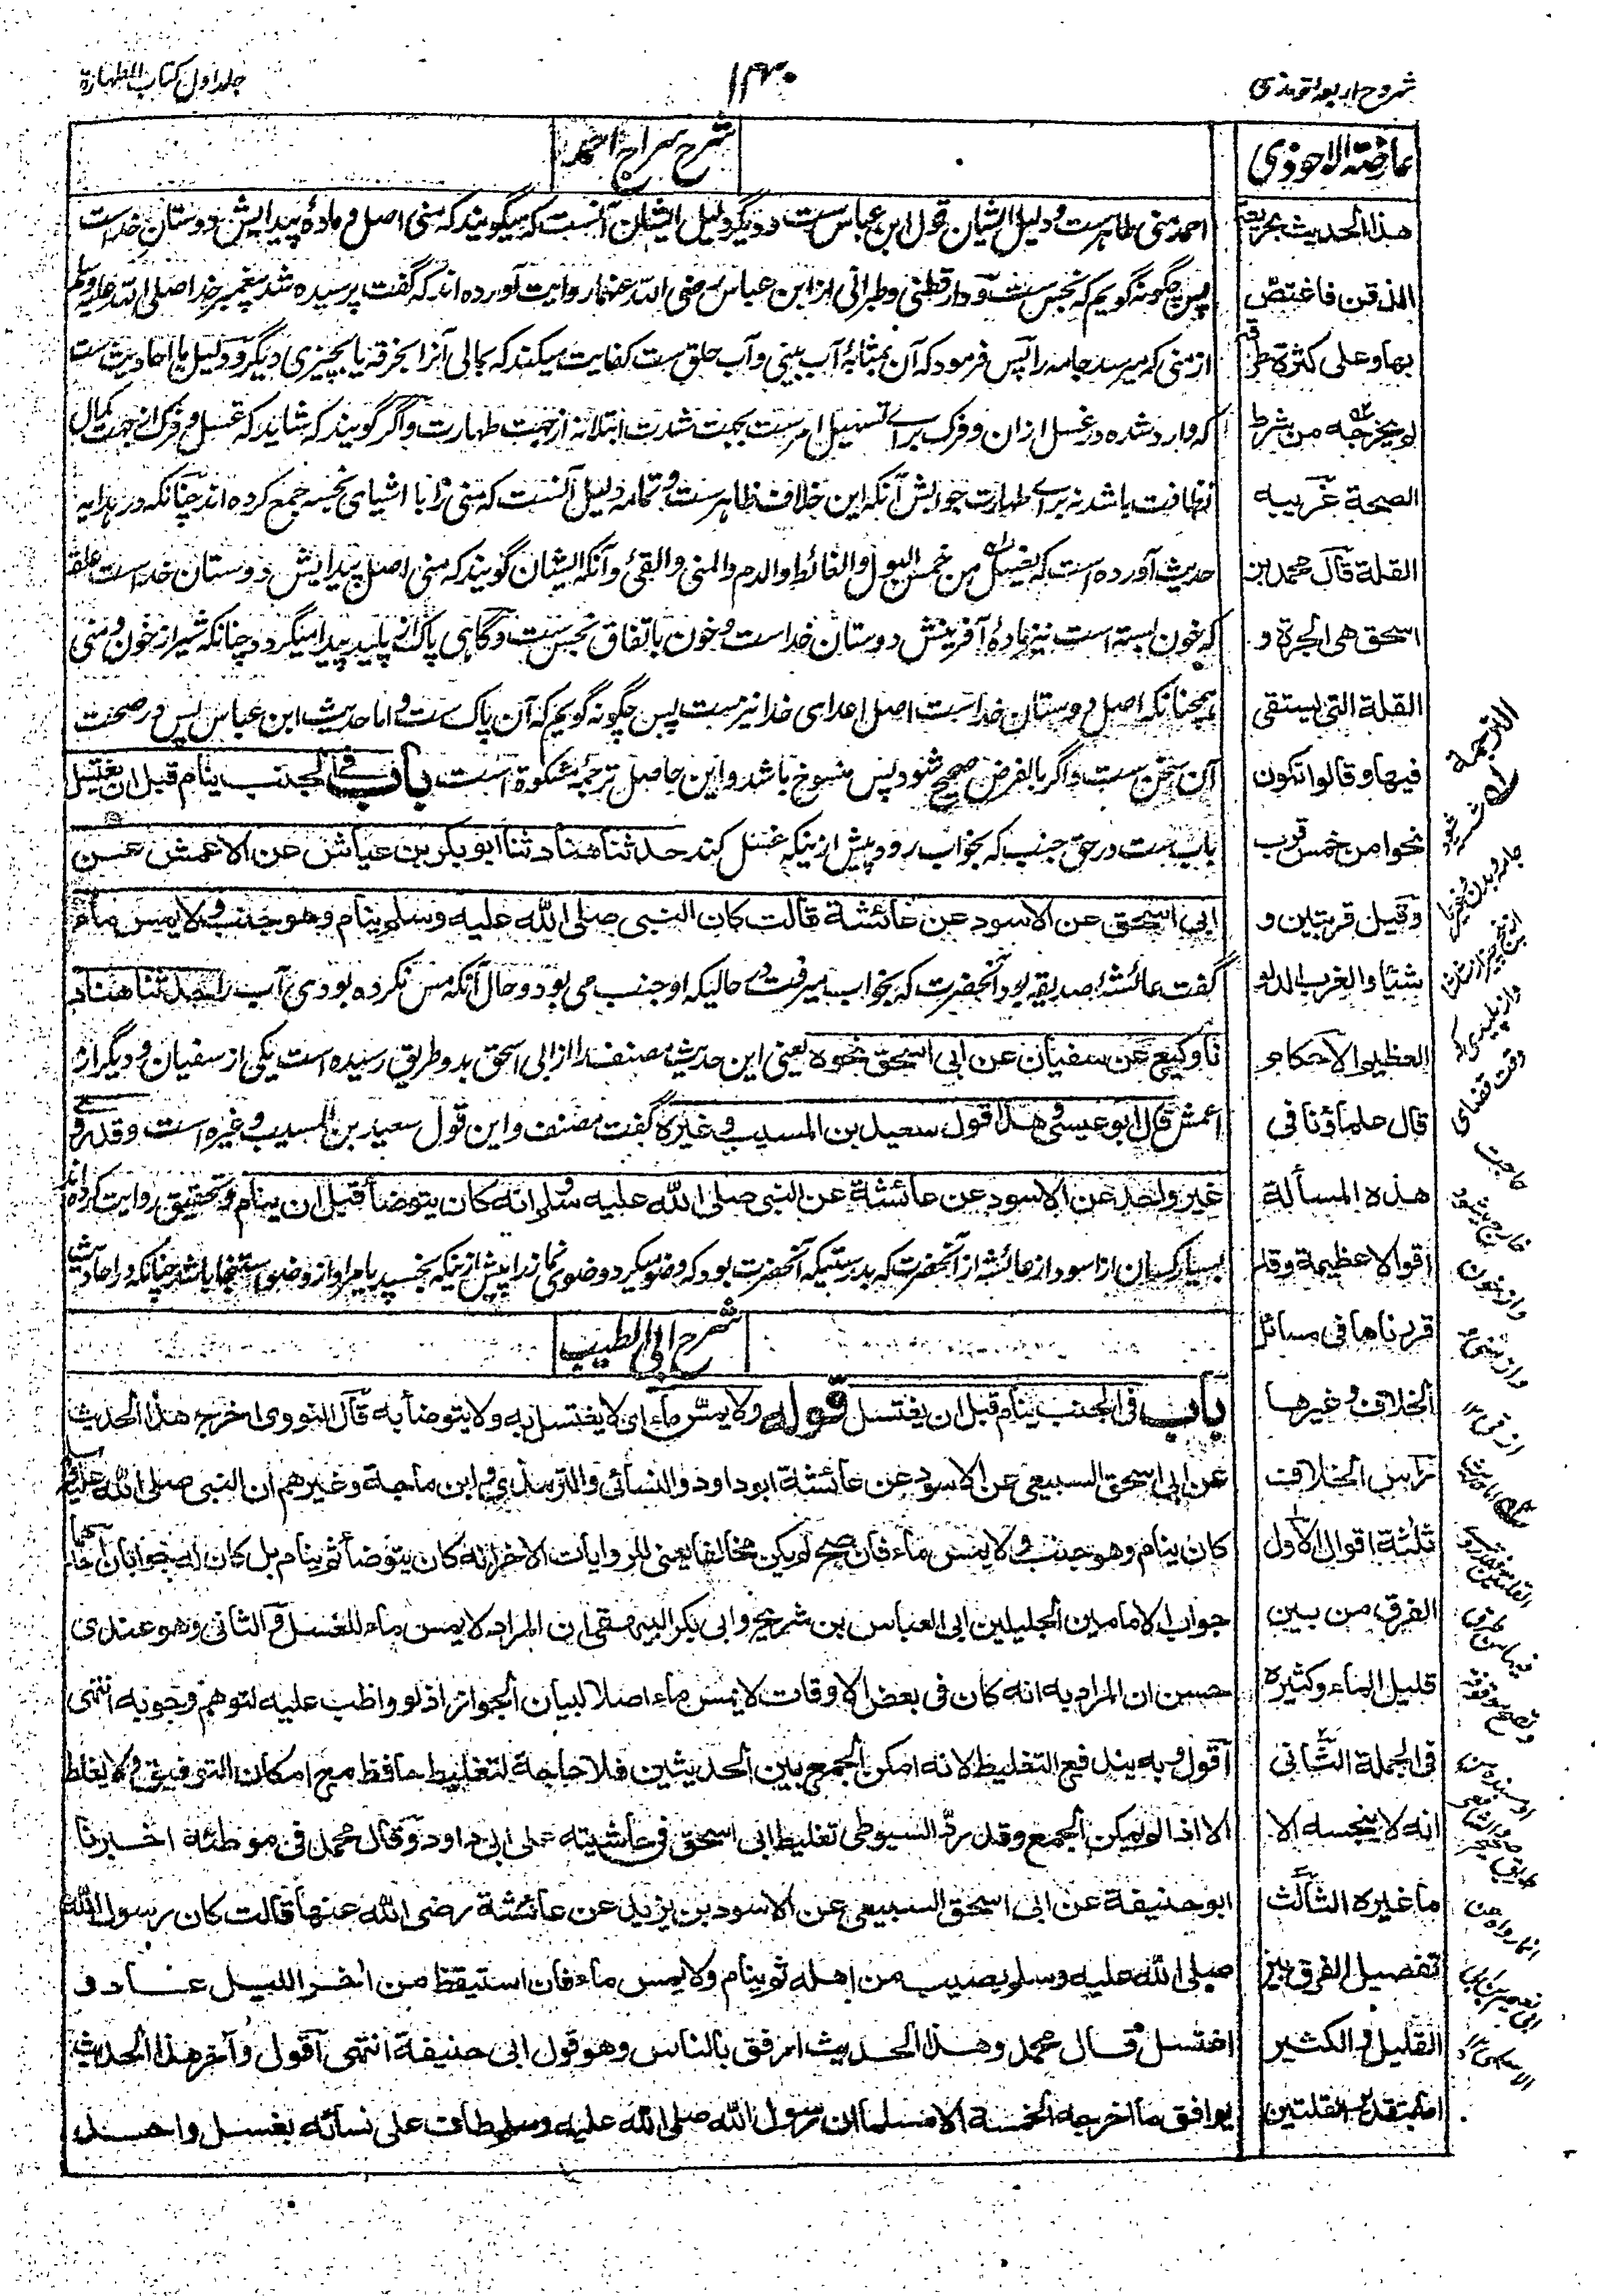 شروح اربعه ترمذی
۱۳۰
جلد اول کتاب الطهارة
عارضة الاحوذی
هذا الحدیث بحریقة
المذقن فاغتص
بها وعلی کثرة طرقه
لم یخرجه من شرط
الصحة غریبه
القلة قال محمد بن
اسحق هی الجرة و
القلة التی یستقی
فیها وقالوا تکون
نحوا من خمس قرب
وقیل قربتین و
شیئا والغرب الدلو
العظیم الاحکام
قال علماؤنا فی
هذه المسألة
اقوالا عظیمة وقد
قررناها فی مسائل
الخلاف وغیرها
رأس الخلاف
ثلثة اقوال الاول
الفرق من بین
قلیل الماء وکثیره
فی الجملة الثانی
انه لا ینجسه الا
ما غیره الثالث
تفصیل الفرق بین
القلیل والکثیر
اما بتقدیر القلتین
شرح سراج احمد
احمد منی طاهر ست و دلیل ایشان قول ابن عباس ست و دیگر دلیل ایشان آنست که میگویند که منی اصل و ماده پیدایش دوستان خداست
پس چگونه گویم که نجس ست و دارقطنی و طبرانی از ابن عباس رضی الله عنهما روایت آورده اند که گفت پرسیده شد پیغمبر خدا صلی الله علیه وسلم
از منی که میرسد جامه را پس فرمود که آن بمثابهٔ آب بینی و آب حلق ست کفایت میکند که بمالی آنرا بخرقه یا بچیزی دیگر و دلیل ما احادیث ست
که وارد شده در غسل ازان و فرک برای تسهیل امر ست بجهت شدت ابتلا نه از جهت طهارت و اگر گویند که شاید که غسل و فرک از جهت کمال
نظافت باشد نه برای طهارت جوابش آنکه این خلاف ظاهر ست و تمامه دلیل آنست که منی را با اشیای نجسه جمع کرده اند چنانکه در هدایه
حدیث آورده است که یغسل من خمس البول و الغائط و الدم و المنی و القئ و آنکه ایشان گویند که منی اصل پیدایش دوستان خداست علقه
که خون بسته است نیز ماده آفرینش دوستان خداست و خون باتفاق نجس ست و گاهی پاک از پلید پیدا میگردد چنانکه شیر از خون و منی
همچنانکه اصل دوستان خداست اصل اعدای خدا نیز ست پس چگونه گویم که آن پاک ست و اما حدیث ابن عباس پس در صحت
آن سخن ست و اگر بالفرض صحیح شود پس منسوخ باشد و این حاصل ترجمهٔ مشکوة است باب فی الجنب ینام قبل ان یغتسل
باب ست در حق جنب که بخواب رود پیش ازینکه غسل کند حدثنا هناد ثنا ابو بکر بن عیاش عن الاعمش عن
ابی اسحق عن الاسود عن عائشة قالت کان النبی صلی الله علیه وسلم ینام وهو جنب ولا یمس ماء
گفت عائشه صدیقه بود آنحضرت که بخواب میرفت در حالیکه او جنب می بود و حال آنکه مس نکرده بودی آب را حدثنا هناد
نا وکیع عن سفیان عن ابی اسحق نحوه یعنی این حدیث مصنف را از ابی اسحق بدو طریق رسیده است یکی از سفیان و دیگر از
اعمش قال ابو عیسی وهذا قول سعید بن المسیب وغیره گفت مصنف و این قول سعید بن المسیب وغیره است وقد روی
غیر واحد عن الاسود عن عائشة عن النبی صلی الله علیه وسلم انه کان یتوضأ قبل ان ینام و تحقیق روایت کرده اند
بسیار کسان از اسود از عائشه از آنحضرت که بدرستیکه آنحضرت بود که وضو میکرد وضوی نماز را پیش ازینکه بخسپد یا مراد از وضو استنجا باشد چنانکه در احادیث
شرح ابی الطیب
باب فی الجنب ینام قبل ان یغتسل قوله ولا یمس ماء ای لا یغتسل به ولا یتوضأ به قال النووی اخرج هذا الحدیث
عن ابی اسحق السبیعی عن الاسود عن عائشة ابو داود والنسائی والترمذی وابن ماجة وغیرهم ان النبی صلی الله علیه وسلم
کان ینام وهو جنب ولا یمس ماء فان صح لم یکن مخالفا یعنی للروایات الاخر انه کان یتوضأ ثم ینام بل کان له جوابان احدهما
جواب الامامین الجلیلین ابی العباس بن شریح وابی بکر البیهقی ان المراد لا یمس ماء للغسل والثانی وهو عندی
حسن ان المراد به انه کان فی بعض الاوقات لا یمس ماء اصلا لبیان الجواز اذ لو واظب علیه لتوهم وجوبه انتهی
اقول وبه یندفع التغلیط لانه امکن الجمع بین الحدیثین فلا حاجة لتغلیط حافظ مع امکان التوفیق ولا یغلط
الا اذا لم یمکن الجمع وقد رد السیوطی تغلیط ابی اسحق فی حاشیته علی ابی داود وقال محمد فی موطئه اخبرنا
ابو حنیفة عن ابی اسحق السبیعی عن الاسود بن یزید عن عائشة رضی الله عنها قالت کان رسول الله
صلی الله علیه وسلم یصیب من اهله ثم ینام ولا یمس ماء فان استیقظ من اخر اللیل عاد و
اغتسل قال محمد وهذا الحدیث ارفق بالناس وهو قول ابی حنیفة انتهی اقول واخر هذا الحدیث
یوافق ما اخرجه الخمسة الا مسلما ان رسول الله صلی الله علیه وسلم طاف علی نسائه بغسل واحد
الترجمة
شسته شود
وقت قضای
حاجت
واز خون
واز منی
از قی